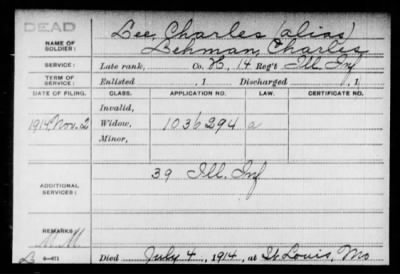 DEAD
NAME OF SOLDIER: Lee, Charles (alias)
Lehman, Charles
SERVICE: Late rank, Co. H, 14 Reg't Ill. Inf
TERM OF SERVICE: Enlisted , 1 Discharged , 1
DATE OF FILING. CLASS. APPLICATION NO. LAW. CERTIFICATE NO.
Invalid,
1914 Nov. 2 Widow, 1036294 a
Minor,
ADDITIONAL SERVICES: 39 Ill. Inf
REMARKS:
Died July 4, 1914, at St. Louis, Mo